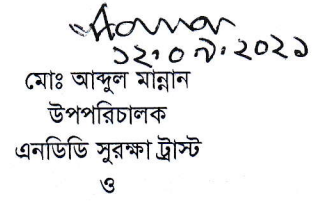 ১২.০৭.২০২১
মোঃ আব্দুল মান্নান
উপপরিচালক
এনডিডি সুরক্ষা ট্রাস্ট
ও